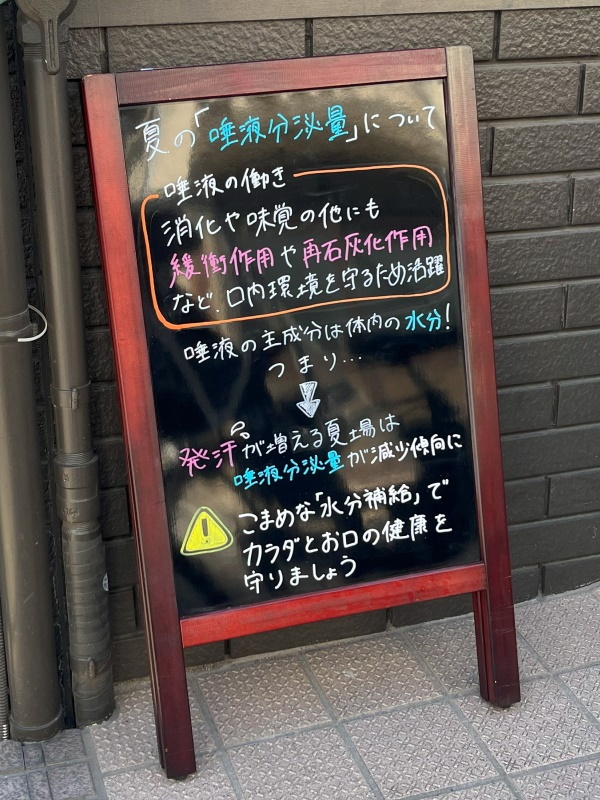 夏の「唾液分泌量」について
唾液の働き
消化や味覚の他にも
緩衝作用や再石灰化作用
など、口内環境を守るため活躍
唾液の主成分は体内の水分!
つまり…
発汗が増える夏場は
唾液分泌量が減少傾向に
こまめな「水分補給」で
カラダとお口の健康を
守りましょう